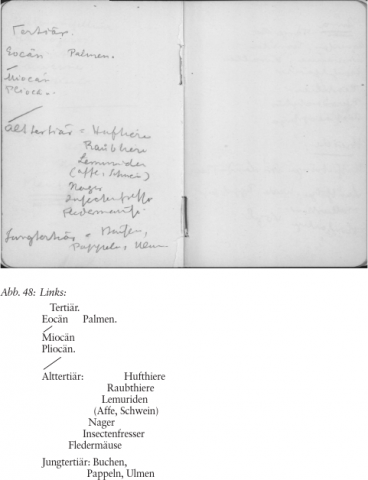 Tertiär.
Eocän Palmen.
Miocän
Plioc..
Alttertiär = Hufthiere
Raubthiere
Lemuriden
(Affe, Schwein)
Nager
Insectenfresser
Fledermäuse
Jungtertiär = Buchen,
Pappeln, Ulmen
Abb. 48: Links:
Tertiär.
Eocän Palmen.
Miocän
Pliocän.
Alttertiär: Hufthiere
Raubthiere
Lemuriden
(Affe, Schwein)
Nager
Insectenfresser
Fledermäuse
Jungtertiär: Buchen,
Pappeln, Ulmen